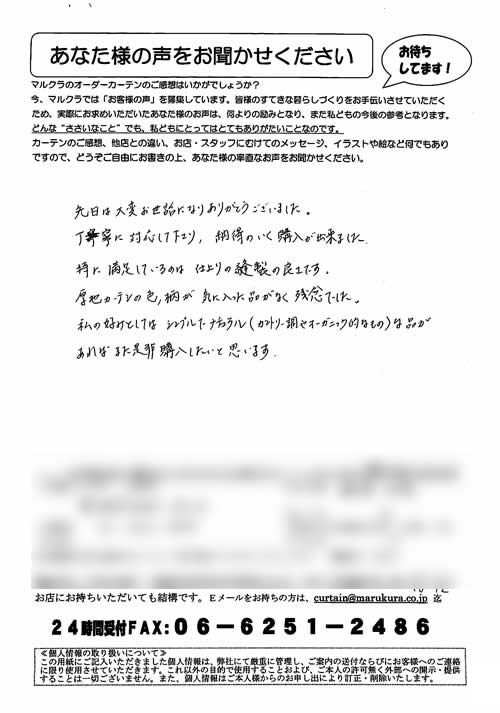 あなた様の声をお聞かせください
お待ち
してます！
マルクラのオーダーカーテンのご感想はいかがでしょうか？
今、マルクラでは「お客様の声」を募集しています。皆様のすてきな暮らしづくりをお手伝いさせていただく
ため、実際にお求めいただいたあなた様のお声は、何よりの励みとなり、また私どもの今後の参考となります。
どんな“ささいなこと”でも、私どもにとってはとてもありがたいことなのです。
カーテンのご感想、他店との違い、お店・スタッフにむけてのメッセージ、イラストや絵など何でもあり
ですので、どうぞご自由にお書きの上、あなた様の率直なお声をお聞かせください。
先日は大変お世話になりありがとうございました。
丁寧に対応して下さり、納得のいく購入が出来ました。
特に満足しているのは仕上りの縫製の良さです。
厚地カーテンの色、柄が気に入った品がなく残念でした。
私の好みとしてはシンプルで ナチュラル(カントリー調やオーガニック的なもの)な品が
あればまた是非購入したいと思います。
お店にお持ちいただいても結構です。Eメールをお持ちの方は、curtain@marukura.co.jp 迄
24時間受付FAX:06-6251-2486
≪個人情報の取り扱いについて≫
この用紙にご記入いただきました個人情報は、弊社にて厳重に管理し、ご案内の送付ならびにお客様へのご連絡
に限り使用させていただきます。これ以外の目的で使用することおよび、ご本人の許可無く外部への開示・提供
することは一切ございません。また、個人情報はご本人様からのお申し出により訂正・削除いたします。